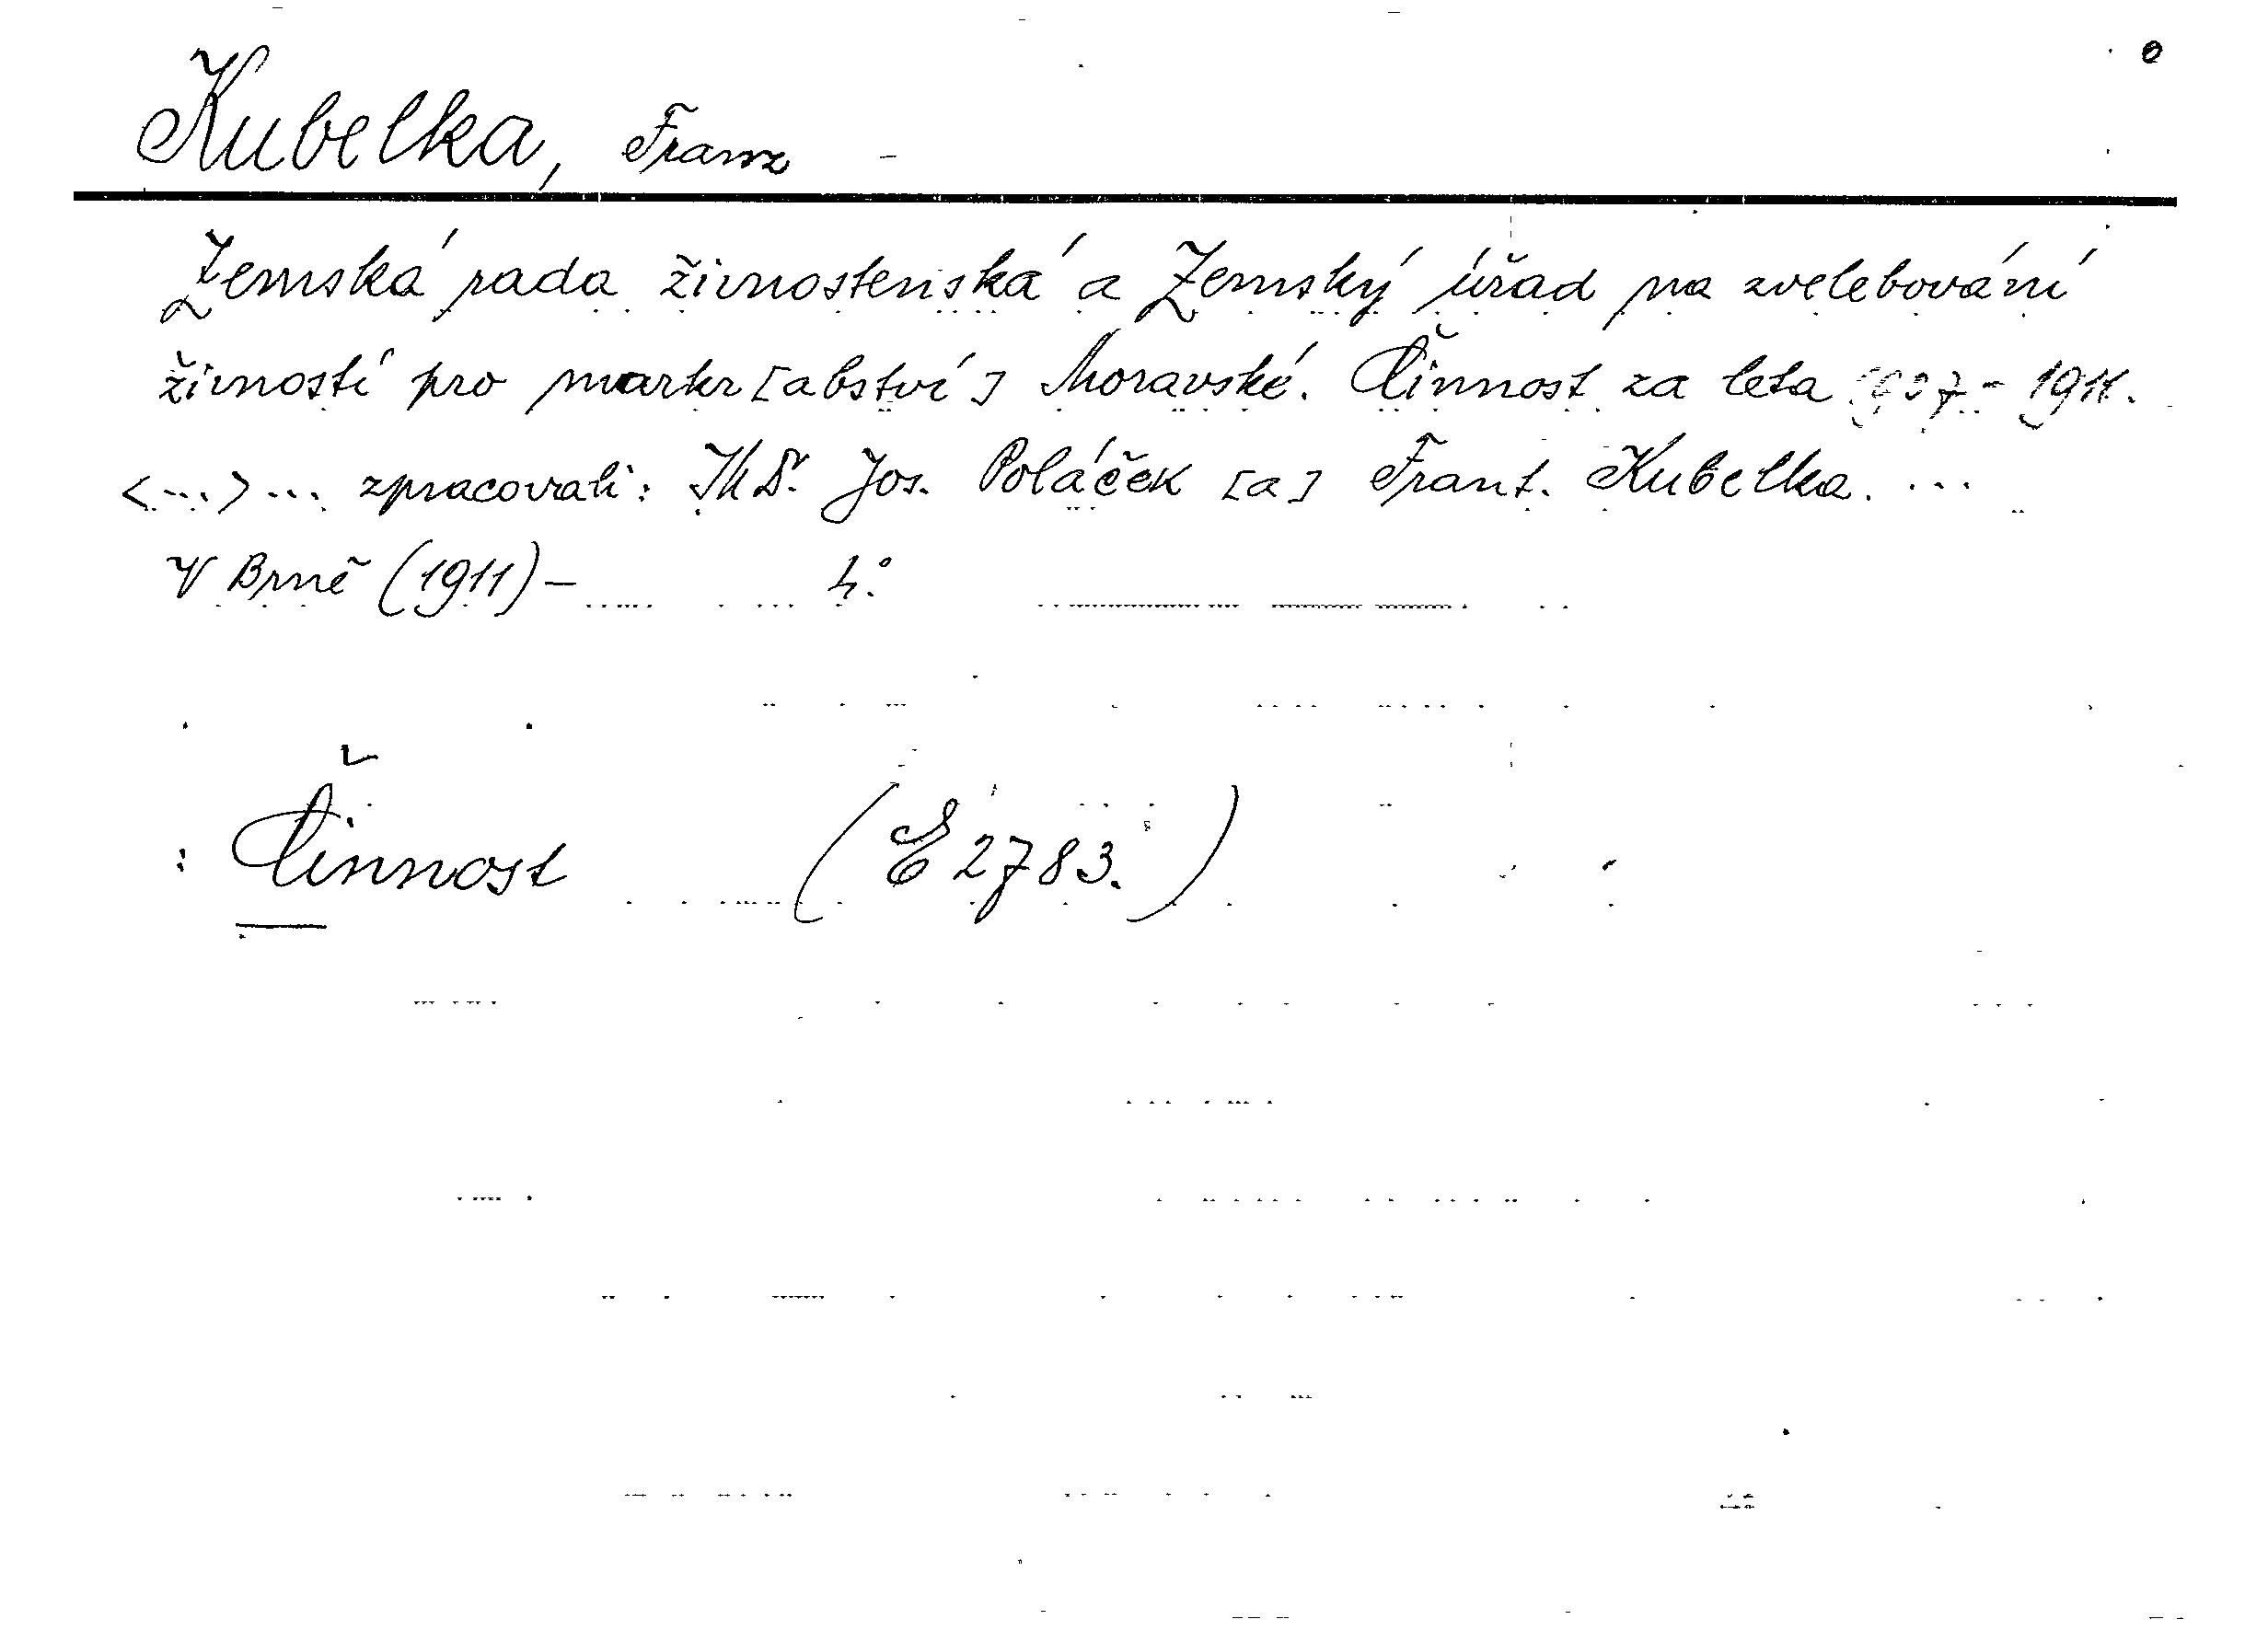 Kubelka, Franz
Zemská rada živnostenská a Zemský úřad na zvelebování
živností pro markr[abství] Moravské. Činnost za leta 1907-1911.
<...>... zpracovali: JUDr. Jos. Poláček [a] Frant. Kubelka. ...
V Brně (1911)- 4°.
: Činnost (E 2783.)